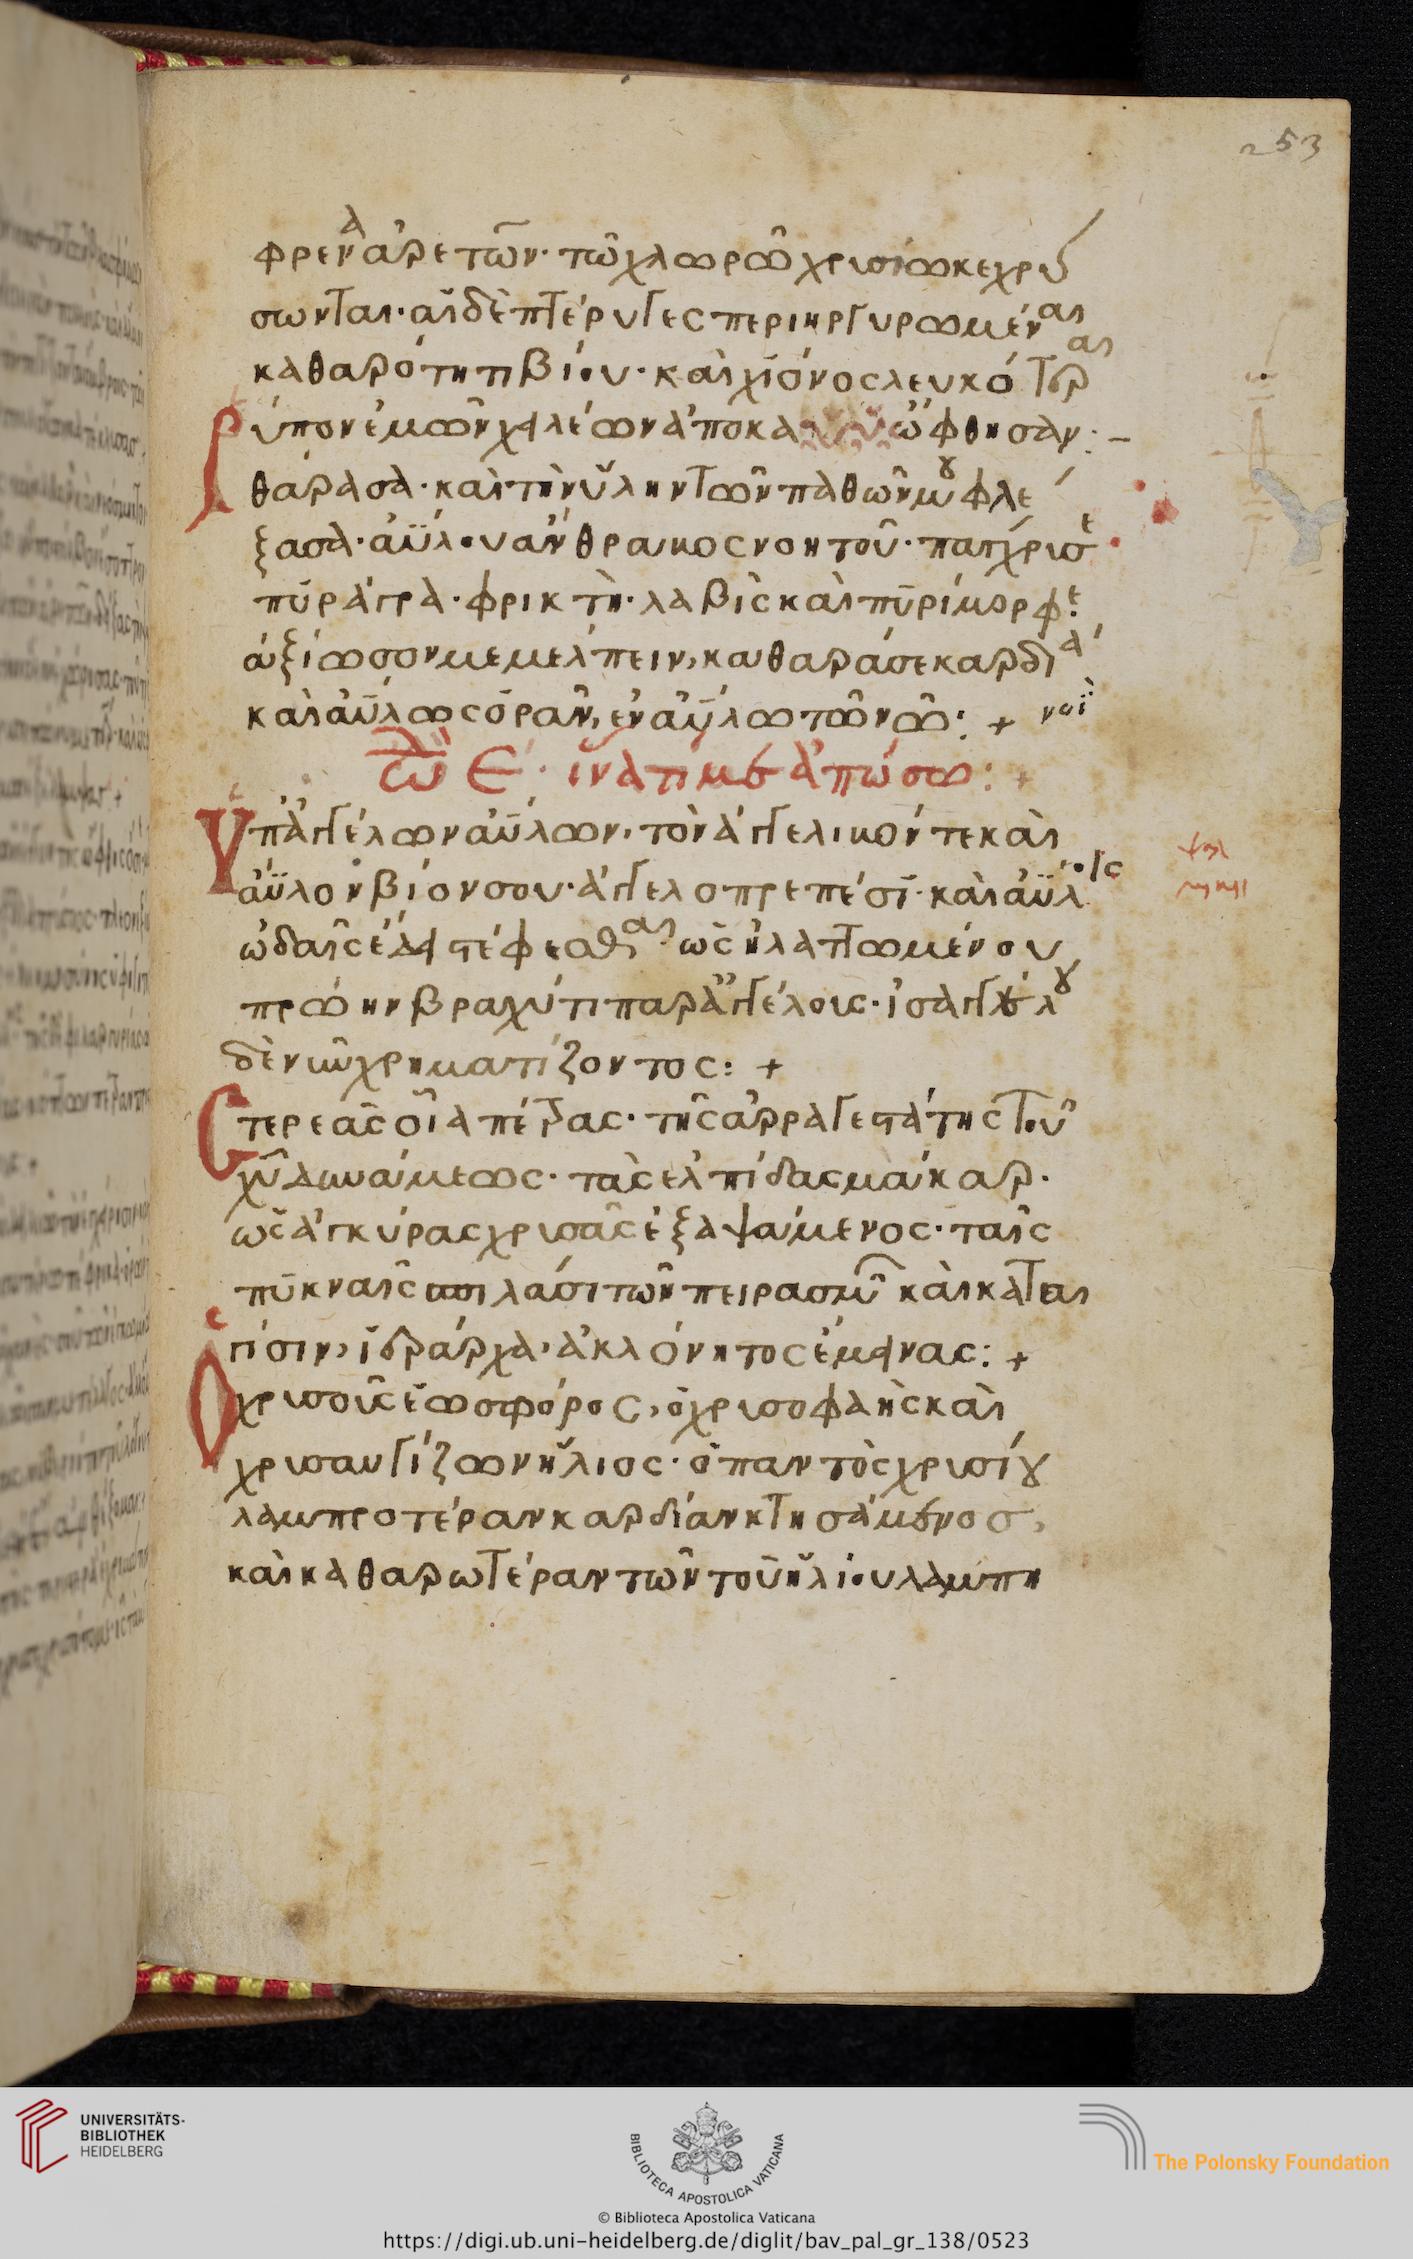 253
φρενα ἀρετῶν· τῶ χλωρῶ χρισίω κεχρύ
σωνται· αἱ δὲ πτέρυγες περιηργυρωμέναι
καθαρότητι βίου· καὶ χιόνος λευκότεραι
ύπον ἐμῶν χειλέων ἀποκα ὤφθησαν:
θάρασα· καὶ τὴν ὕλην τῶν παθῶν μου φλέ
ξασα· ἀΰλου ἄνθρακος νοητοῦ·
πυράγρα· φρικτὴ· λαβὶς καὶ πυρίμορφε
ἀξίωσον με μέλπειν, καθαρᾶ σε καρδία
καὶ ἀΰλως ὁρᾶν, ἐν ἀΰλω τῶ νοΐ
ὠ Ε· ἵνα τί με ἀπώσω:
Ὑπ' ἀγγέλων ἀΰλων, τὸν ἀγγελικόν τε καὶ
ἄϋλον βίον σου· ἀγγελοπρεπέσι· καὶ ἀΰλοις
ὠδαῖς ἔδει στέφεσθαι· ὡς ἠλαττωμένου
πρώην βραχύ τι παρ' ἀγγέλοις· ἰσαγγέλου
δὲ νῦν χρηματίζοντος: +
Στερεᾶς οἷα πέτρας· τῆς ἀρραγεστάτης τοῦ
χυ δυνάμεως· τὰς ἐλπίδας μάκαρ·
ὡς ἀγκύρας χρισᾶς ἐξαψάμενος· ταῖς
πυκναῖς λασι τῶν πειρασμῶν καὶ καται
γίσιν, ἱεράρχα, ἀκλόνητος ἔμεινας: +
Ὁ χρισοῦς ἑωσφόρος, ὁ χρισοφαὴς καὶ
χρισαυγίζων ἥλιος· ὁ παντὸς χρισίου
λαμπροτέραν καρδίαν κτησάμενος,
καὶ καθαρωτέραν τῶν τοῦ ἡλίου λαμπη
UNIVERSITÄTS-
BIBLIOTHEK
HEIDELBERG
BIBLIOTECA APOSTOLICA VATICANA
The Polonsky Foundation
© Biblioteca Apostolica Vaticana
https://digi.ub.uni-heidelberg.de/diglit/bav_pal_gr_138/0523